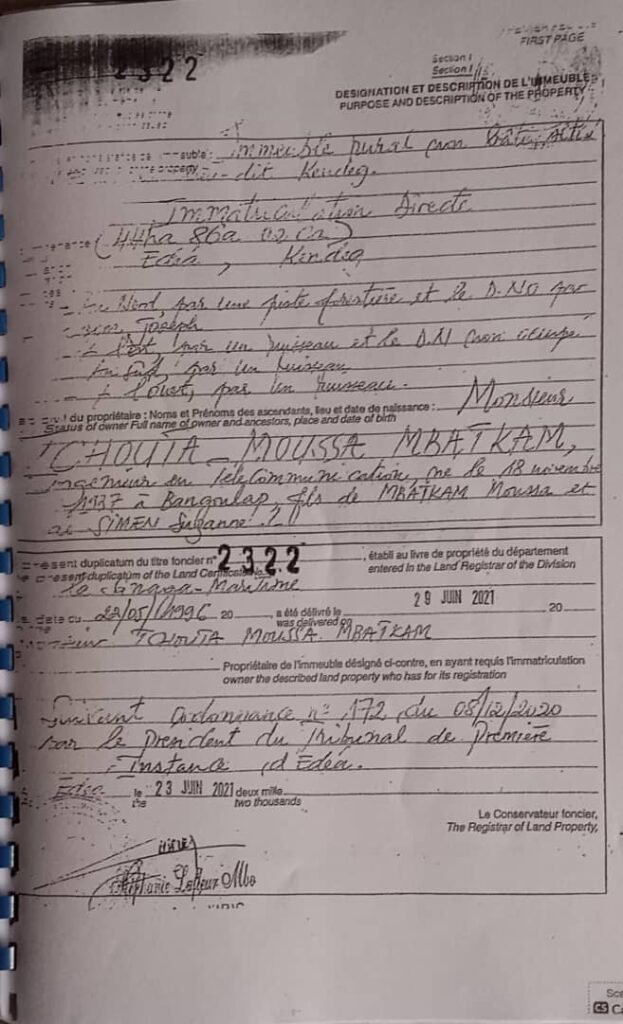 FIRST PAGE
2322
Section I
Section I
DESIGNATION ET DESCRIPTION DE L'IMMEUBLE
PURPOSE AND DESCRIPTION OF THE PROPERTY
Immeuble rural non bâti, situé
dit Kendeg.
Immatriculation Directe
(44ha 86a 00 Ca)
Edéa, Kendeg
Nord, par une piste forestière et le D.NO par
Joseph
l'Est par un ruisseau et le D.N non occupé
Au Sud, par un ruisseau
l'ouest, par un ruisseau.
du propriétaire : Noms et Prénoms des ascendants, lieu et date de naissance : Monsieur
Status of owner Full name of owner and ancestors, place and date of birth
TCHOUTA - MOUSSA MBATKAM,
ingénieur en télécommunication, né le 18 novembre
1937 à Bangoulap, fils de MBATKAM Moussa et
de SIMEN Suzanne
present duplicatum du titre foncier n° 2322, établi au livre de propriété du département
present duplicatum of the Land Certificate entered in the Land Registrar of the Division
la Sanaga-Maritime
29 JUIN 2021
date du 20 a été délivré le 20
was delivered on
TCHOUTA MOUSSA MBATKAM
Propriétaire de l'immeuble désigné ci-contre, en ayant requis l'immatriculation
owner the described land property who has for its registration
Suivant ordonnance n° 172 du 08/12/2020
par le Président du Tribunal de Première
Instance d'Edéa.
Edéa le 23 JUIN 2021 deux mille
the two thousands
Le Conservateur foncier,
The Registrar of Land Property,
CS